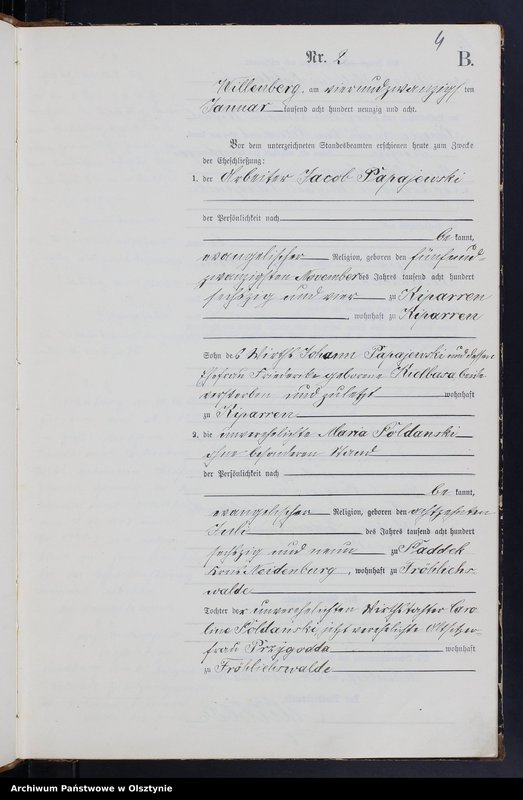 4
Nr. 2
B.
Willenberg, am vierundzwanzigsten
Januar tausend acht hundert neunzig und acht.
Vor dem unterzeichneten Standesbeamten erschienen heute zum Zwecke
der Eheschließung:
1. der Arbeiter Jacob Papajewski
der Persönlichkeit nach
be kannt,
evangelischer Religion, geboren den fünfund-
zwanzigsten November des Jahres tausend acht hundert
sechszig und vier zu Kiparren
, wohnhaft zu Kiparren
Sohn des Wirths Johann Papajewski und dessen
Ehefrau Friederike geborene Kielbassa beide
verstorben und zuletzt wohnhaft
zu Kiparren
2. die unverehelichte Maria Poldanski
ohne besonderen Stand
der Persönlichkeit nach
be kannt,
evangelischer Religion, geboren den achtzehnten
Juli des Jahres tausend acht hundert
sechszig und neun zu Paddek
Kreis Neidenburg, wohnhaft zu Fröhlichs-
walde
Tochter der unverehelichten Wirthstochter Caro
line Poldanski, jetzt verehelichte
frau Przygodda wohnhaft
zu Fröhlichswalde
Archiwum Państwowe w Olsztynie